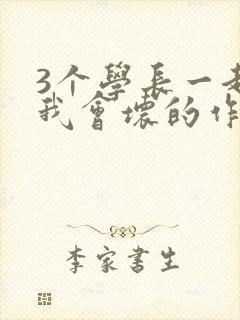 3个學長一
我會壞的作
李家書生